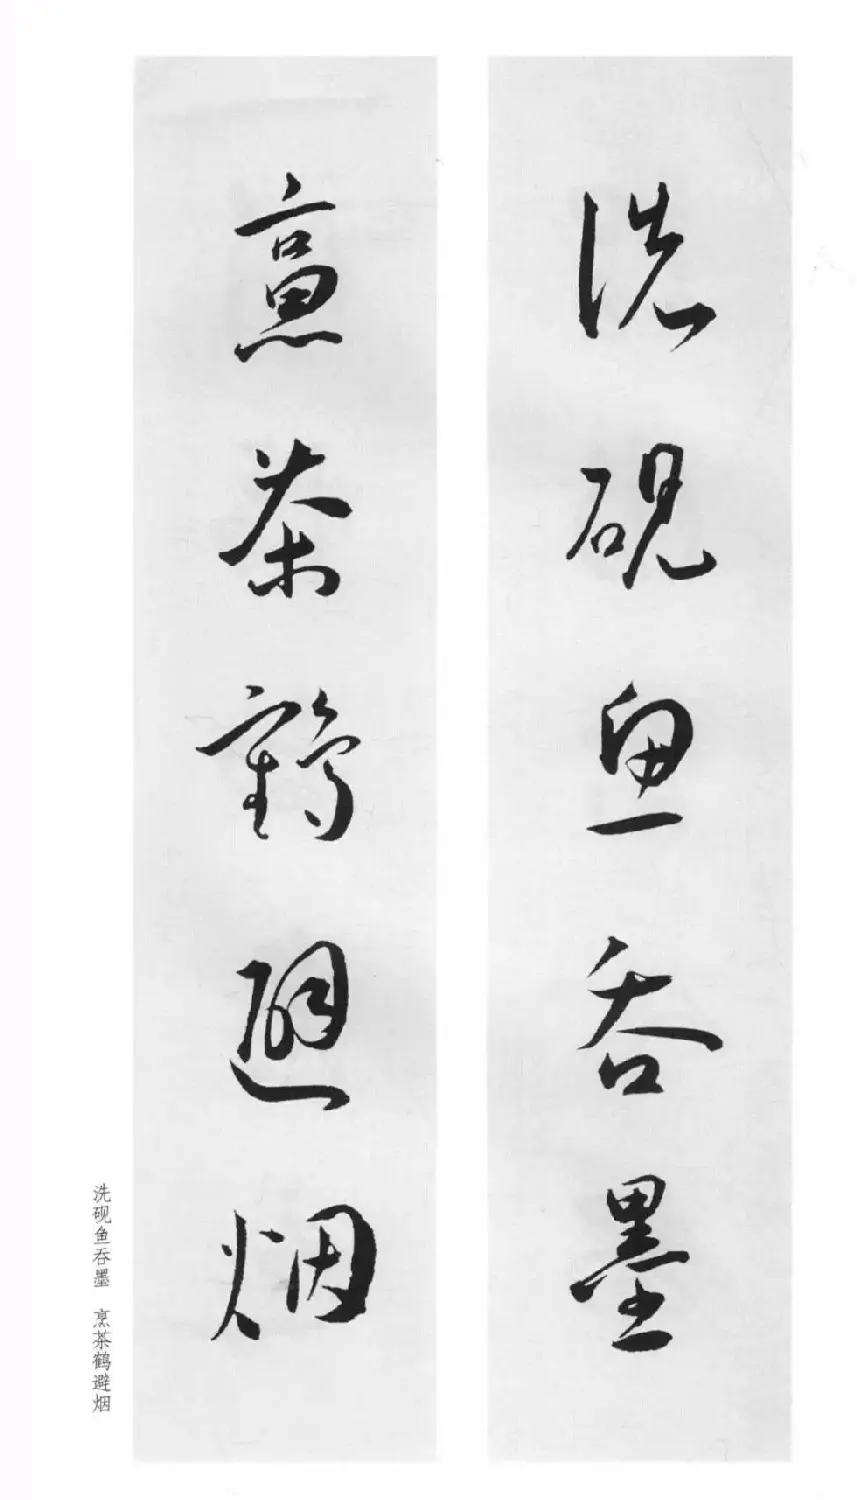 洗砚鱼吞墨
烹茶鹤避烟
洗砚鱼吞墨 烹茶鹤避烟